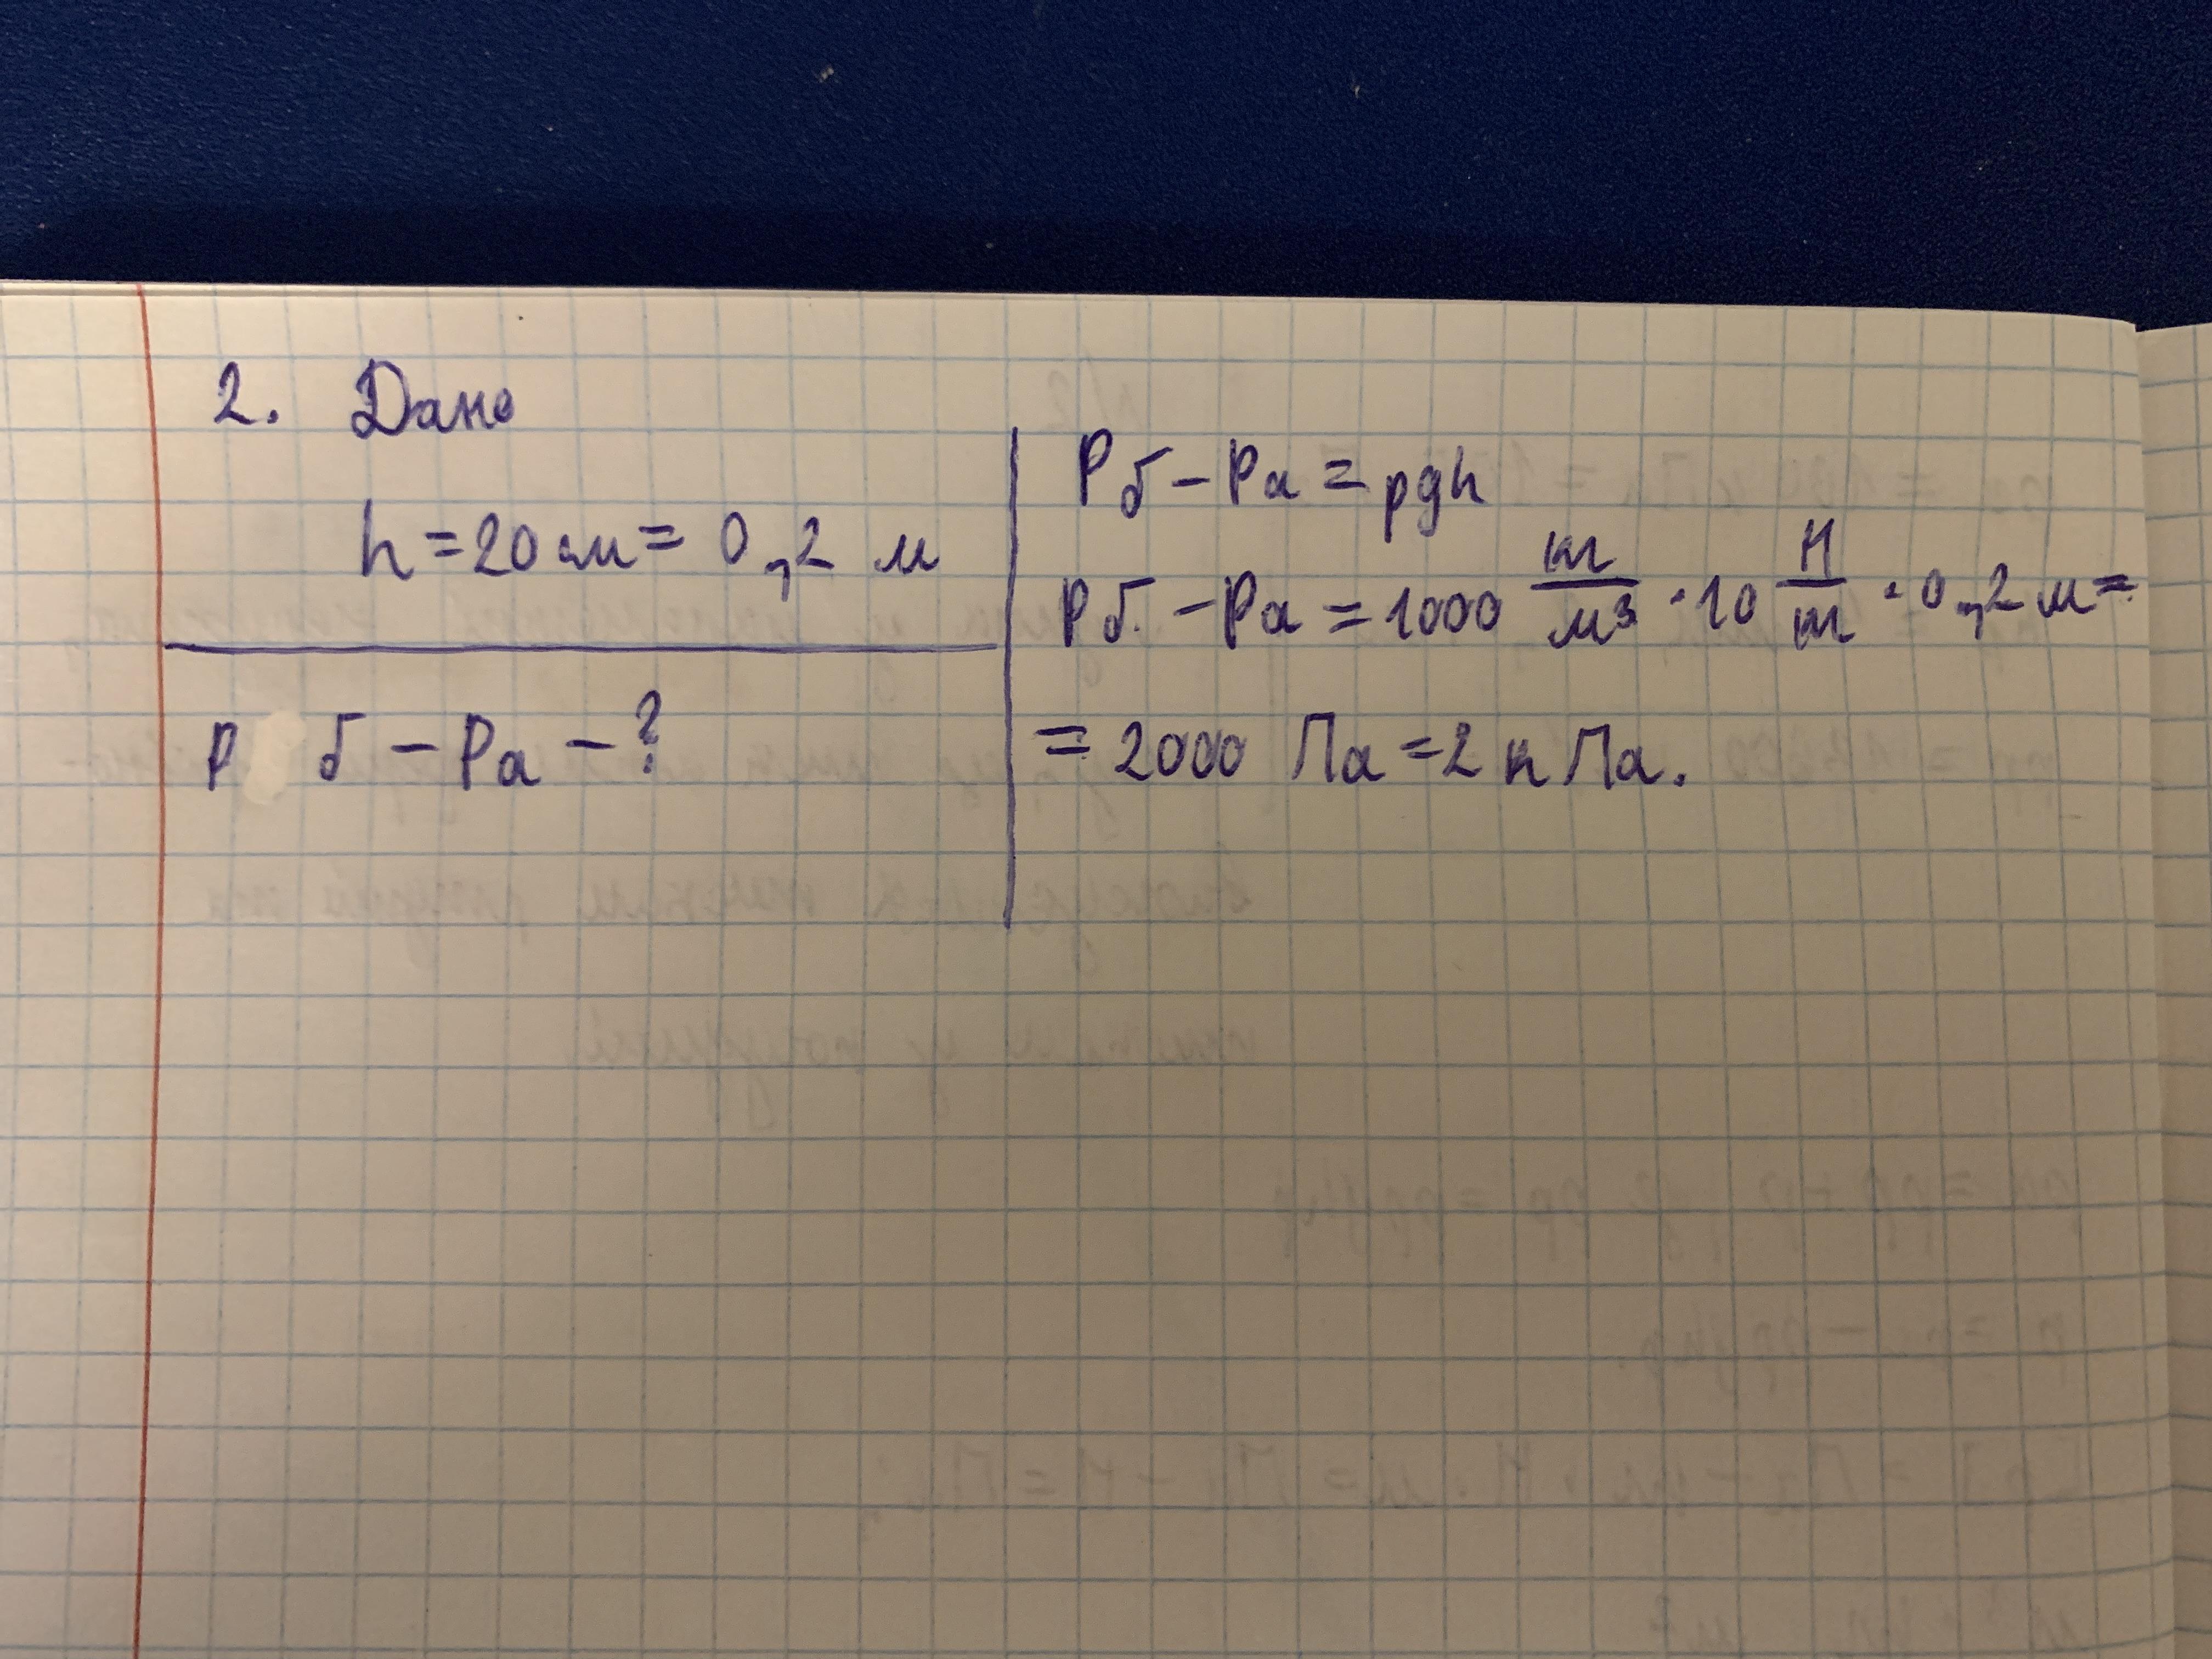 2. Дано
h = 20 см = 0,2 м
Pб - Pа - ?
Pб - Pа = pgh
Pб. - Pа = 1000 кг/м³ · 10 Н/кг · 0,2 м =
= 2000 Па = 2 к Па.